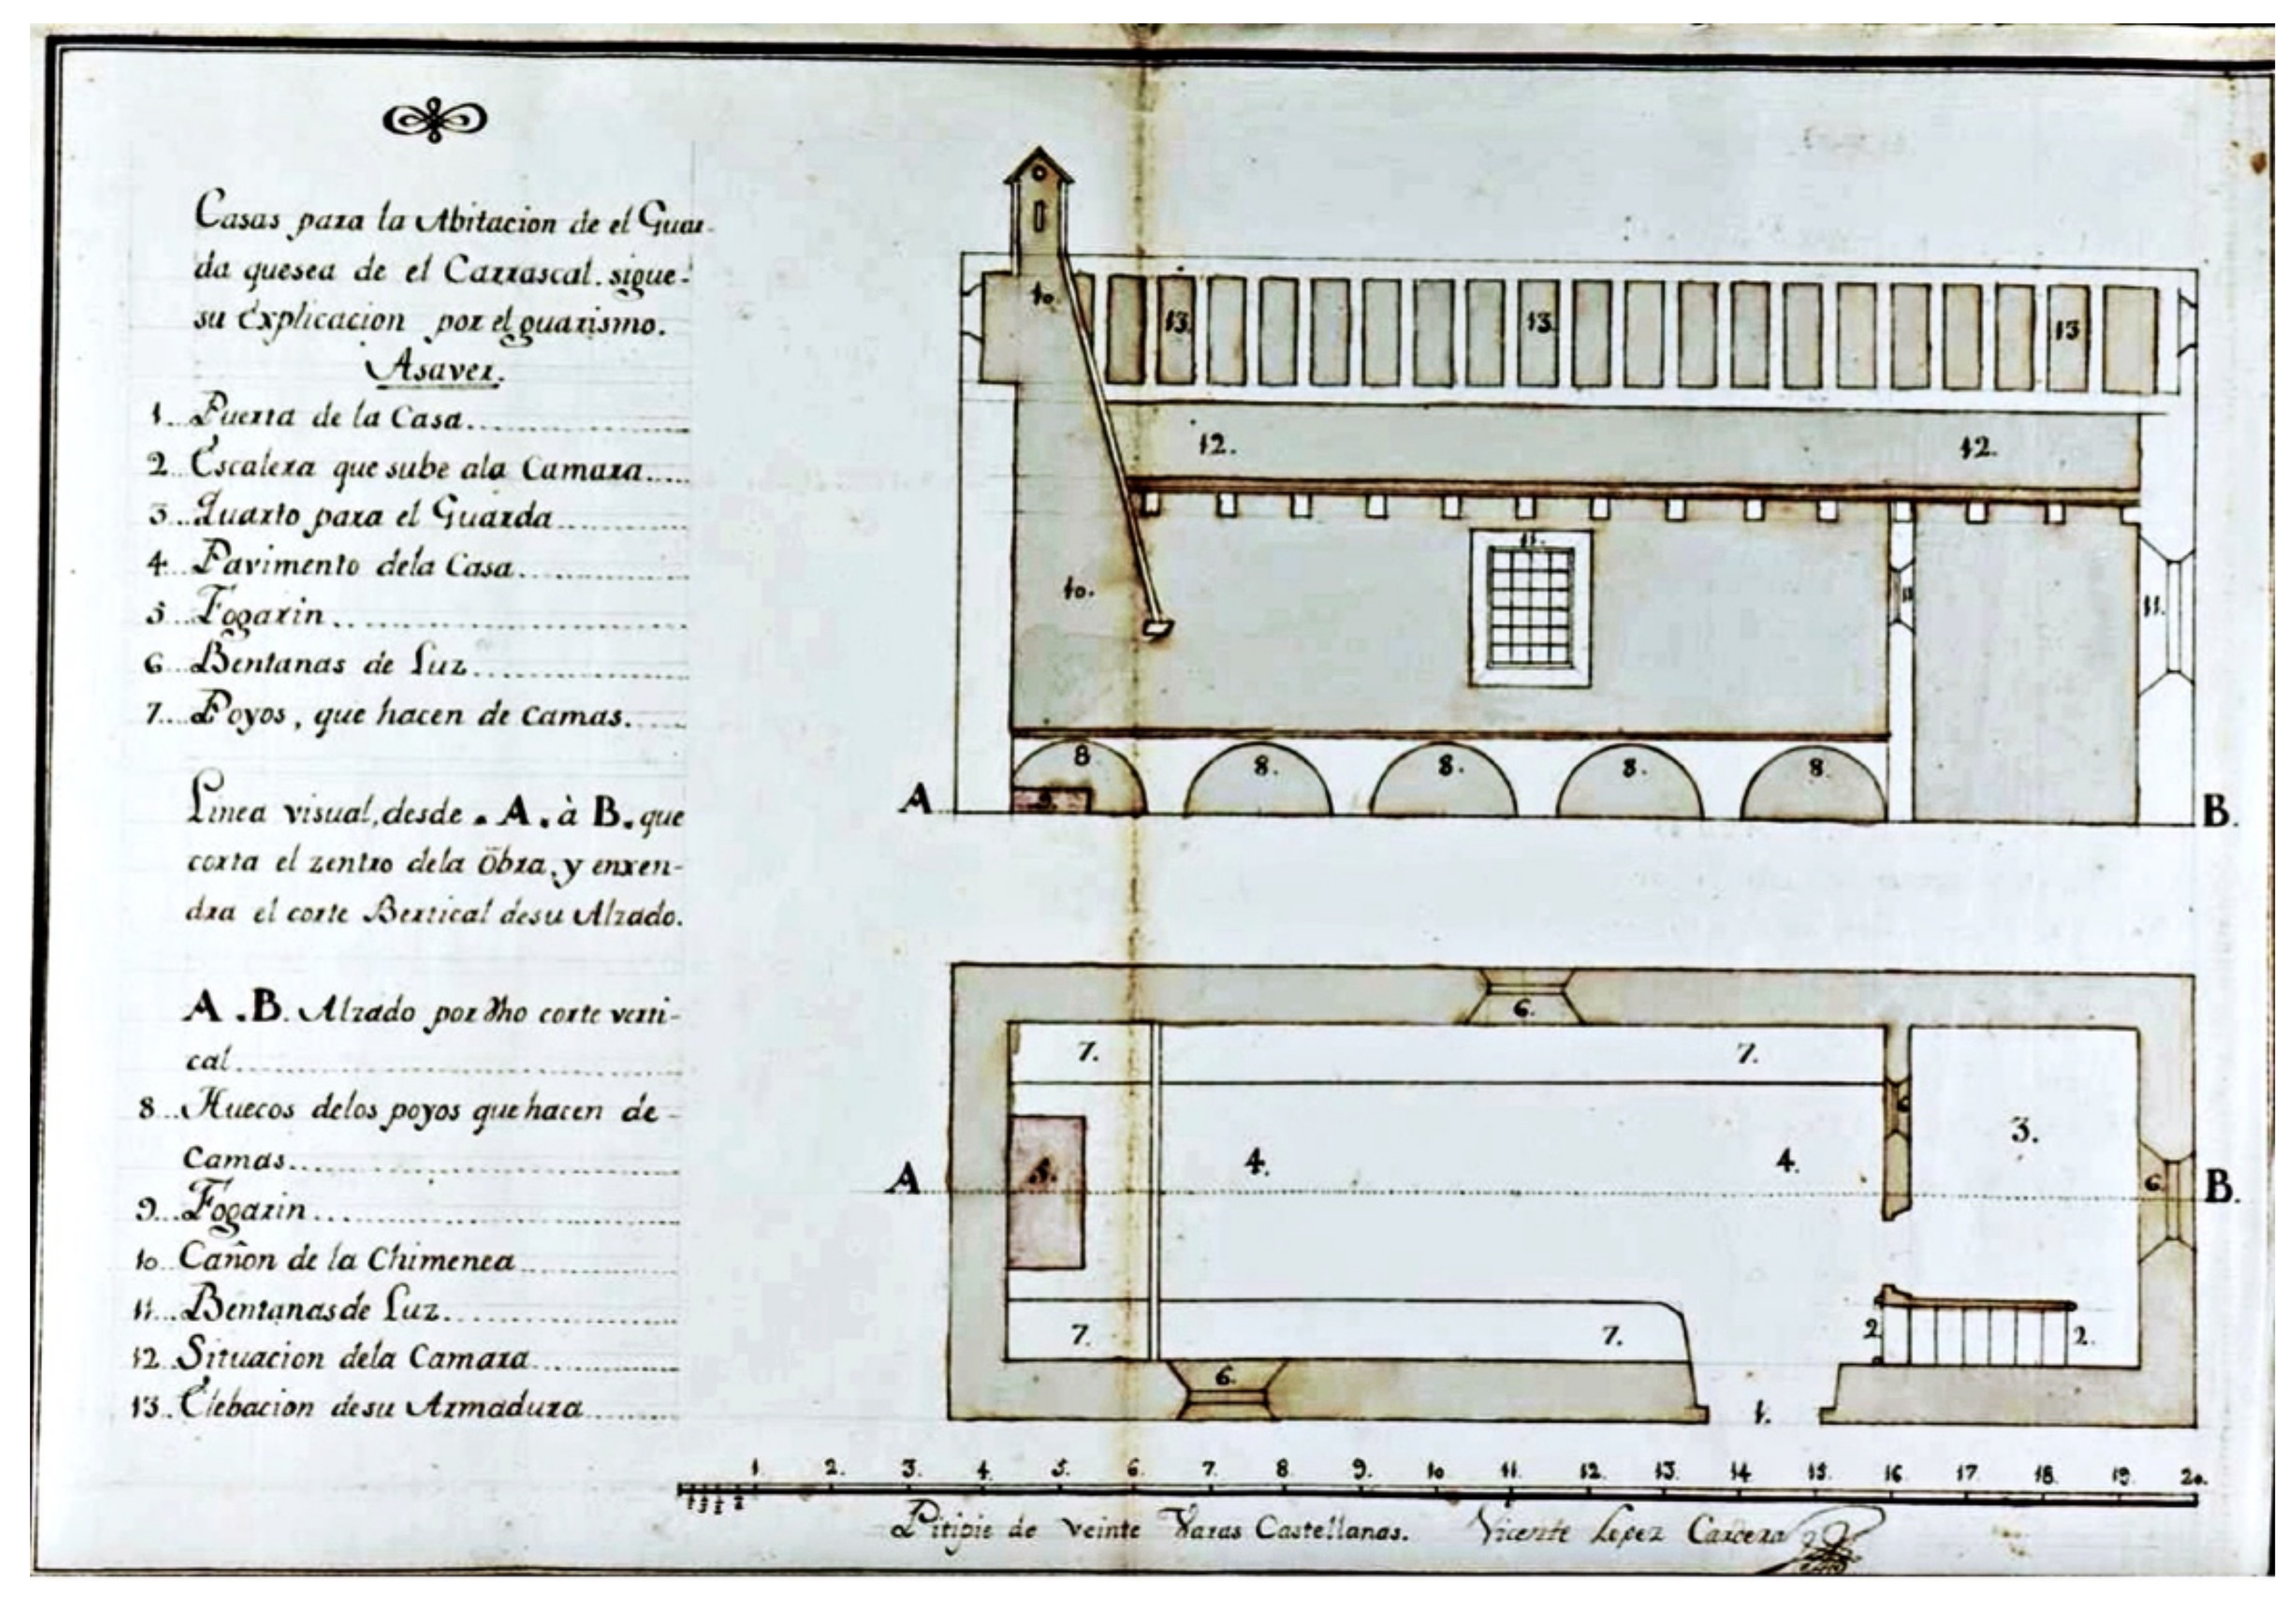 Casas para la Abitacion de el Guar-
da quesea de el Carrascal. sigue-
su explicacion por el guarismo.
Asaver.
1... Puerta de la Casa
2... Escalera que sube ala Camara
3... Quarto para el Guarda
4... Pavimento dela Casa
5... Fogarin
6... Bentanas de Luz
7... Poyos, que hacen de Camas.
Linea visual, desde . A. à B. que
corta el zentro dela Obra, y enxen-
dra el corte Bertical desu Alzado.
A . B. Alzado por dho corte verti-
cal
8... Huecos delos poyos que hacen de
Camas
9... Fogarin
10.. Cañon de la Chimenea
11... Bentanas de Luz
12.. Situacion dela Camara
13.. Elebacion desu Armadura
10.
13.
13.
13
12.
12.
11.
10.
11
11.
8
8.
8.
8.
8.
9.
A
B.
6.
7.
7.
6
3.
5.
4.
4.
6.
A
B.
7.
7.
2
2.
6.
1.
1. 2. 3. 4. 5. 6. 7. 8. 9. 10 11. 12. 13. 14 15. 16 17. 18. 19. 20.
Pitipie de veinte Varas Castellanas. Vicente Lopez Carcera